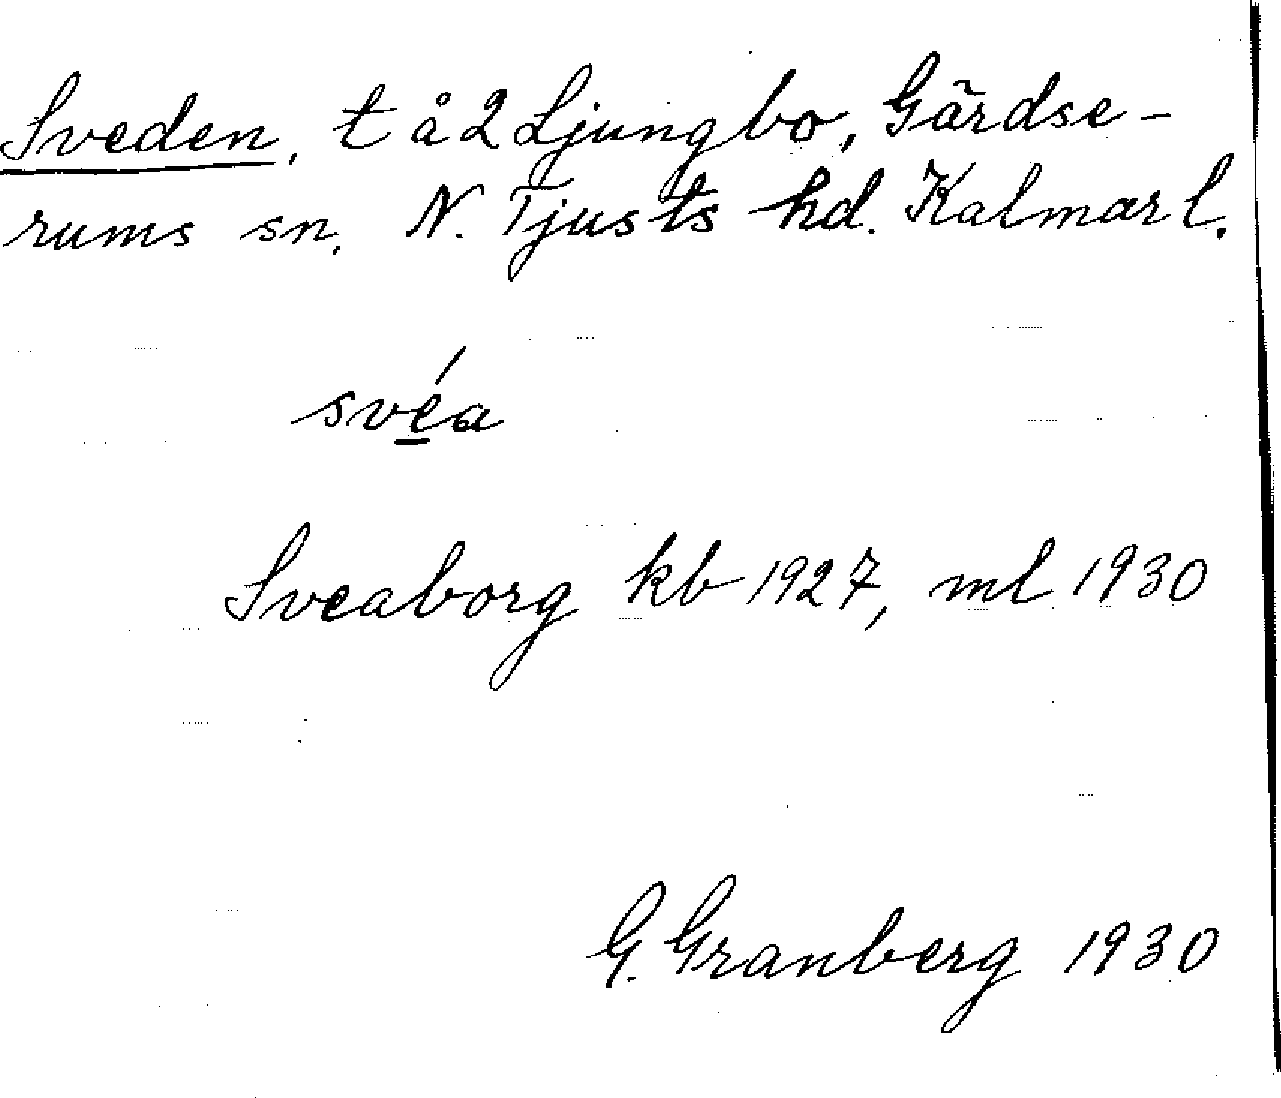 Sveden, t å 2 Ljungbo, Gärdse-
rums sn, N. Tjusts hd. Kalmar l.
svéa
Sveaborg kb 1927, ml 1930
G. Granberg 1930